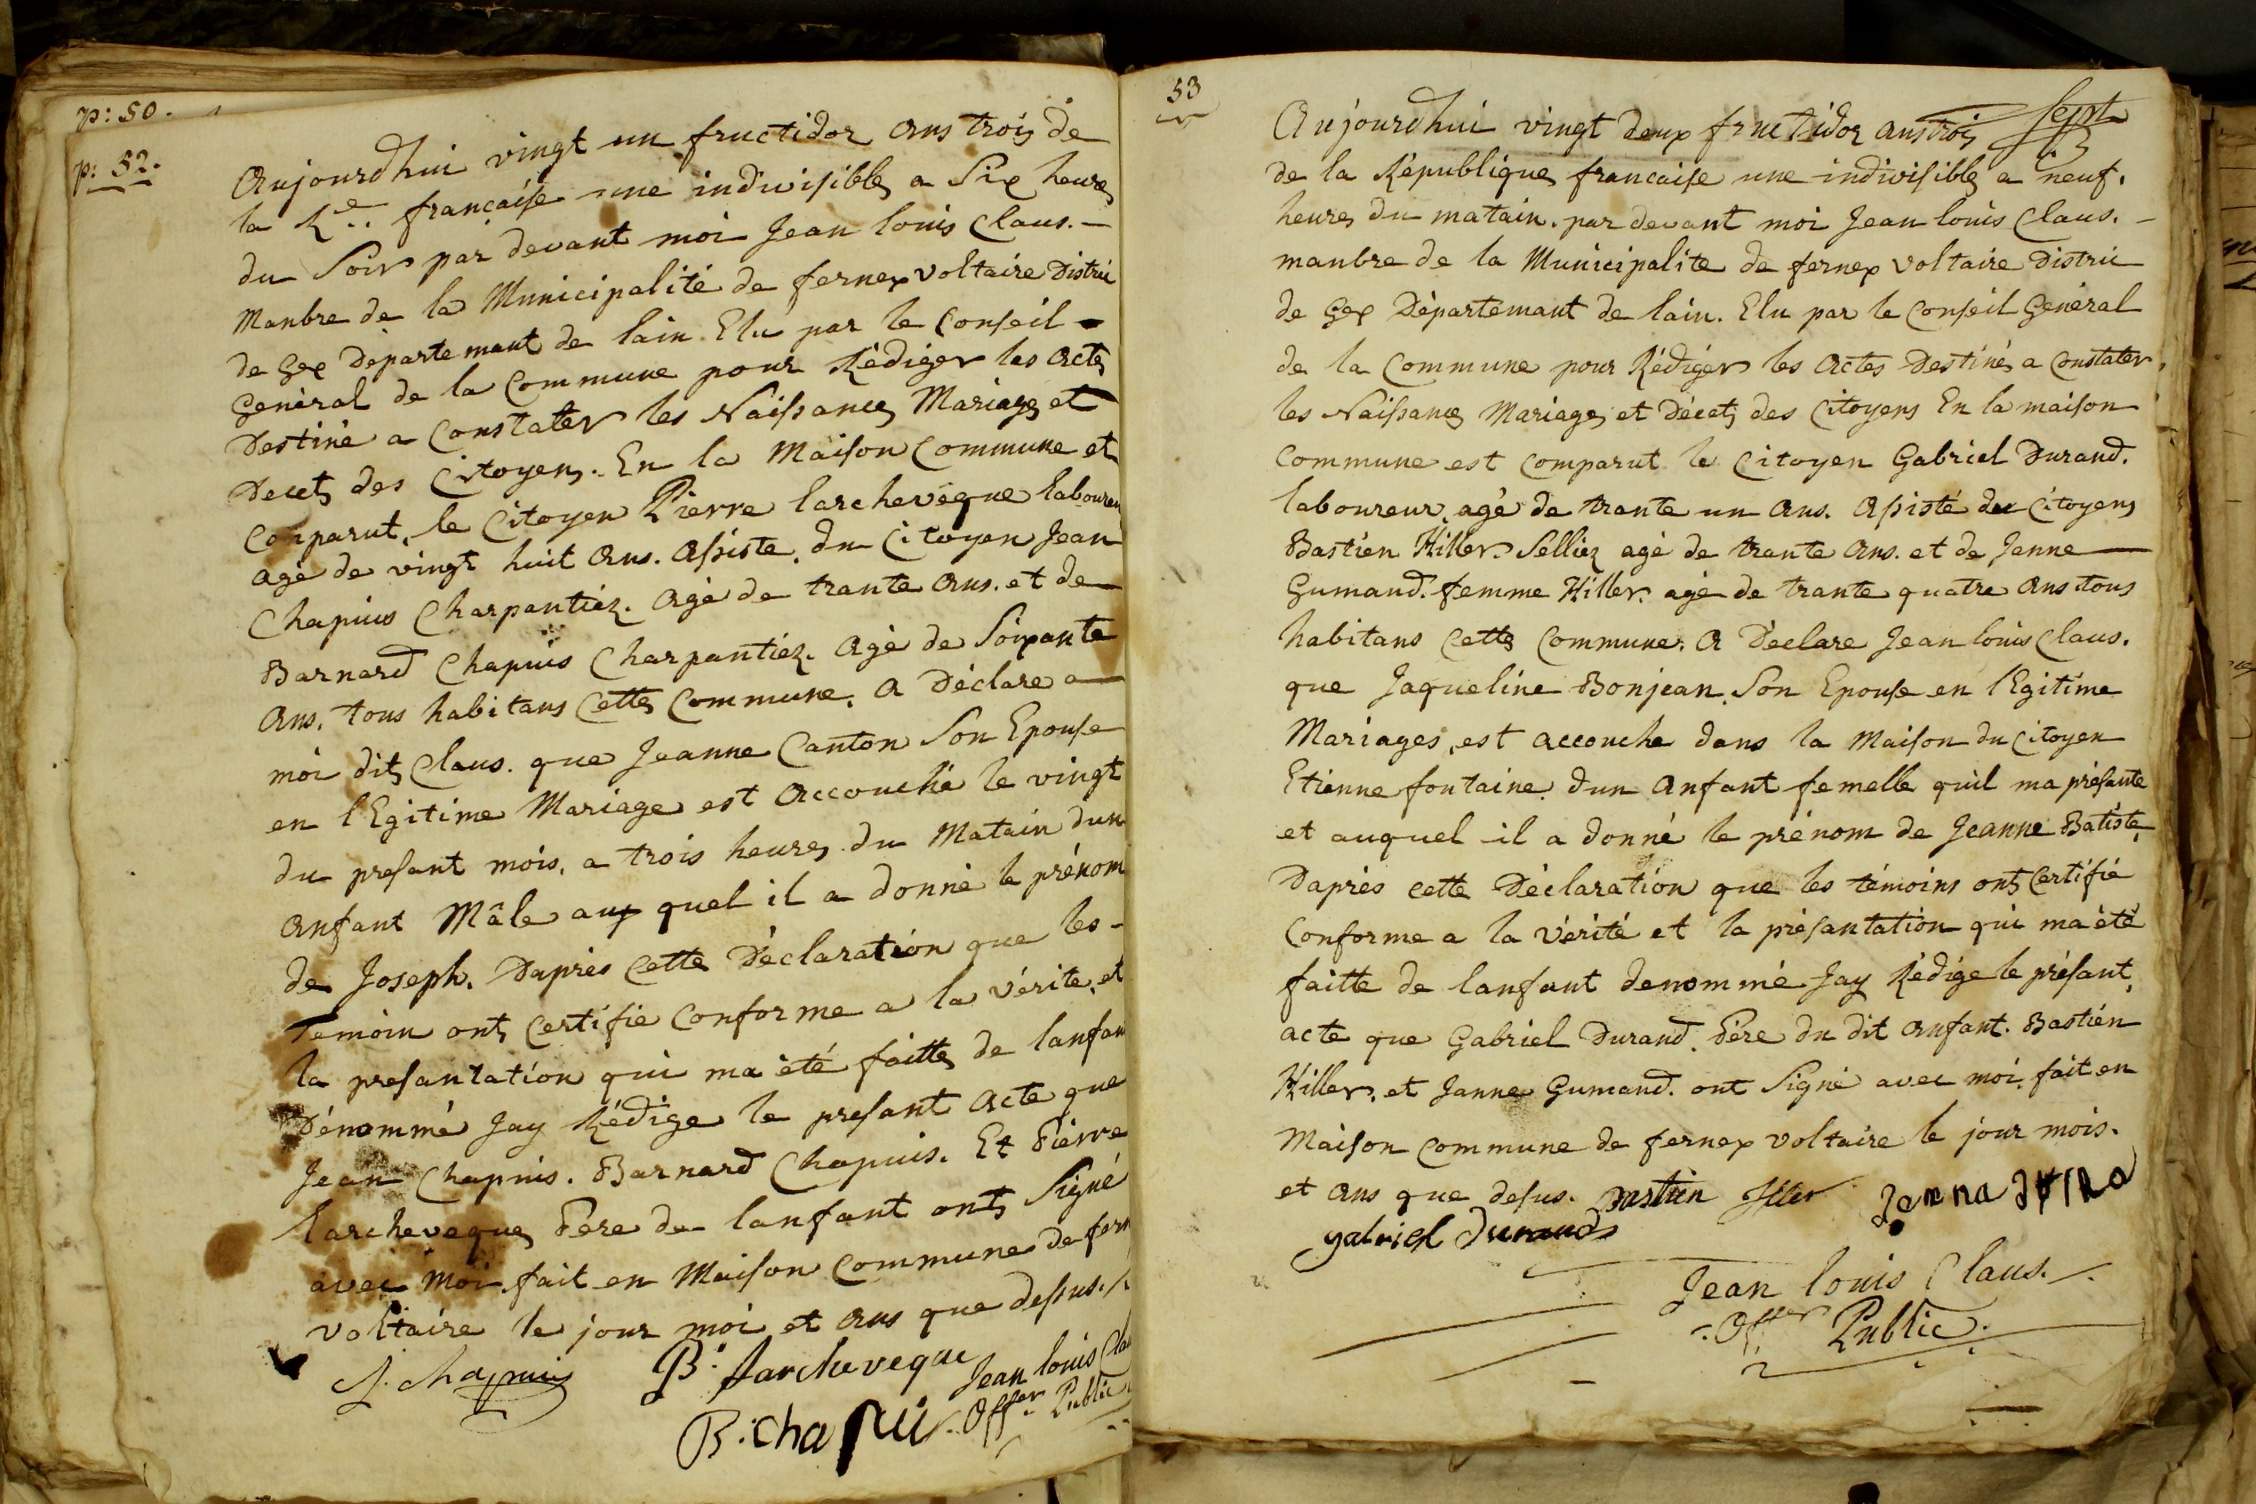 p: 50.
p: 52.
Aujourdhui vingt un fructidor ans trois de
la Re.. française une indivisible a Six heures
du Soir par devant moi Jean louis Claus. —
Manbre de la Municipalité de fernex voltaire Distric
de Gex Departemant de lain Elu par le Conseil
Genéral de la Commune pour Rédiger les Actes
Destiné a Constater les Naissances Mariages et
Decets des Citoyens. En la Maison Commune et
Comparut, le Citoyen Pierre larchevêque laboureu
agé de vingt huit Ans. Assiste du Citoyen Jean
Chapuis Charpantiéz. Agé de trante Ans. et de
Barnard Chapuis Charpantiéz. Agé de Soixante
Ans. tous habitans Cette Commune. A Déclare a
moi dit Claus. que Jeanne Canton Son Epouse
en lEgitime Mariage est Accouché le vingt
du presant mois. a trois heures du Matain dun
Anfant Mâle aux quel il a donné le prénom
de Joseph. Daprès Cette Déclaration que les -
Temoin ont Certifie Conforme a la vérite. et
la presantation qui ma été faitte de lanfan
Dénommé Jay Rédige le presant Acte que
Jean Chapuis. Barnard Chapuis. Et Piérre
larcheveque Pére de lanfant ont Signé
avec Moi. fait en Maison Commune de fern
voltaire le jour moi et Ans que dessus. /.
J. chapuis
P. Larcheveque
Jean louis Cla
B: chapui
Offer Public
53
Aujourdhui vingt deux fructidor ans trois
Sept
de la Républiques francaise une indivisible a neuf.
heures du matain. par devant moi Jean louis Claus. —
manbre de la Municipalite de fernex voltaire Distric
de Gex Départemant de lain. Elu par le Conseil Genéral
de la Commune pour Rédiger les Actes Destinés a Constater
les Naissances Mariages et Décets des Citoyens En la maison
Commune est Comparut le Citoyen Gabriel Durand.
laboureur, agé de trante un Ans. Assisté du Citoyens
Bastien Hiller. Selliez agé de trante Ans. et de Janne —
Gumand. femme Hiller. agé de trante quatre Ans tous
habitans Cette Commune. A Déclare Jean louis Claus.
que Jaqueline Bonjean. Son Epouse en lEgitime
Mariages, est accouche dans la Maison du Citoyen
Etienne fontaine. dun Anfant femelle quil ma présante
et auquel il a donné le prénom de Jeanne Batiste,
Daprès cette Déclaration que les témoins ont Certifié
Conforme a la Vérité et la présantation qui ma été
faitte de lanfant denommé Jay Rédige le présant,
acte que Gabriel Durand. Pére du dit Anfant. Bastién
Hiller. et Janne Gumand. ont Signé avec moi. fait en
Maison commune de fernex voltaire le jour mois.
et Ans que desus.
Bastien Iller
gabriel Durand
Jean louis Claus. /.
Offer Public.